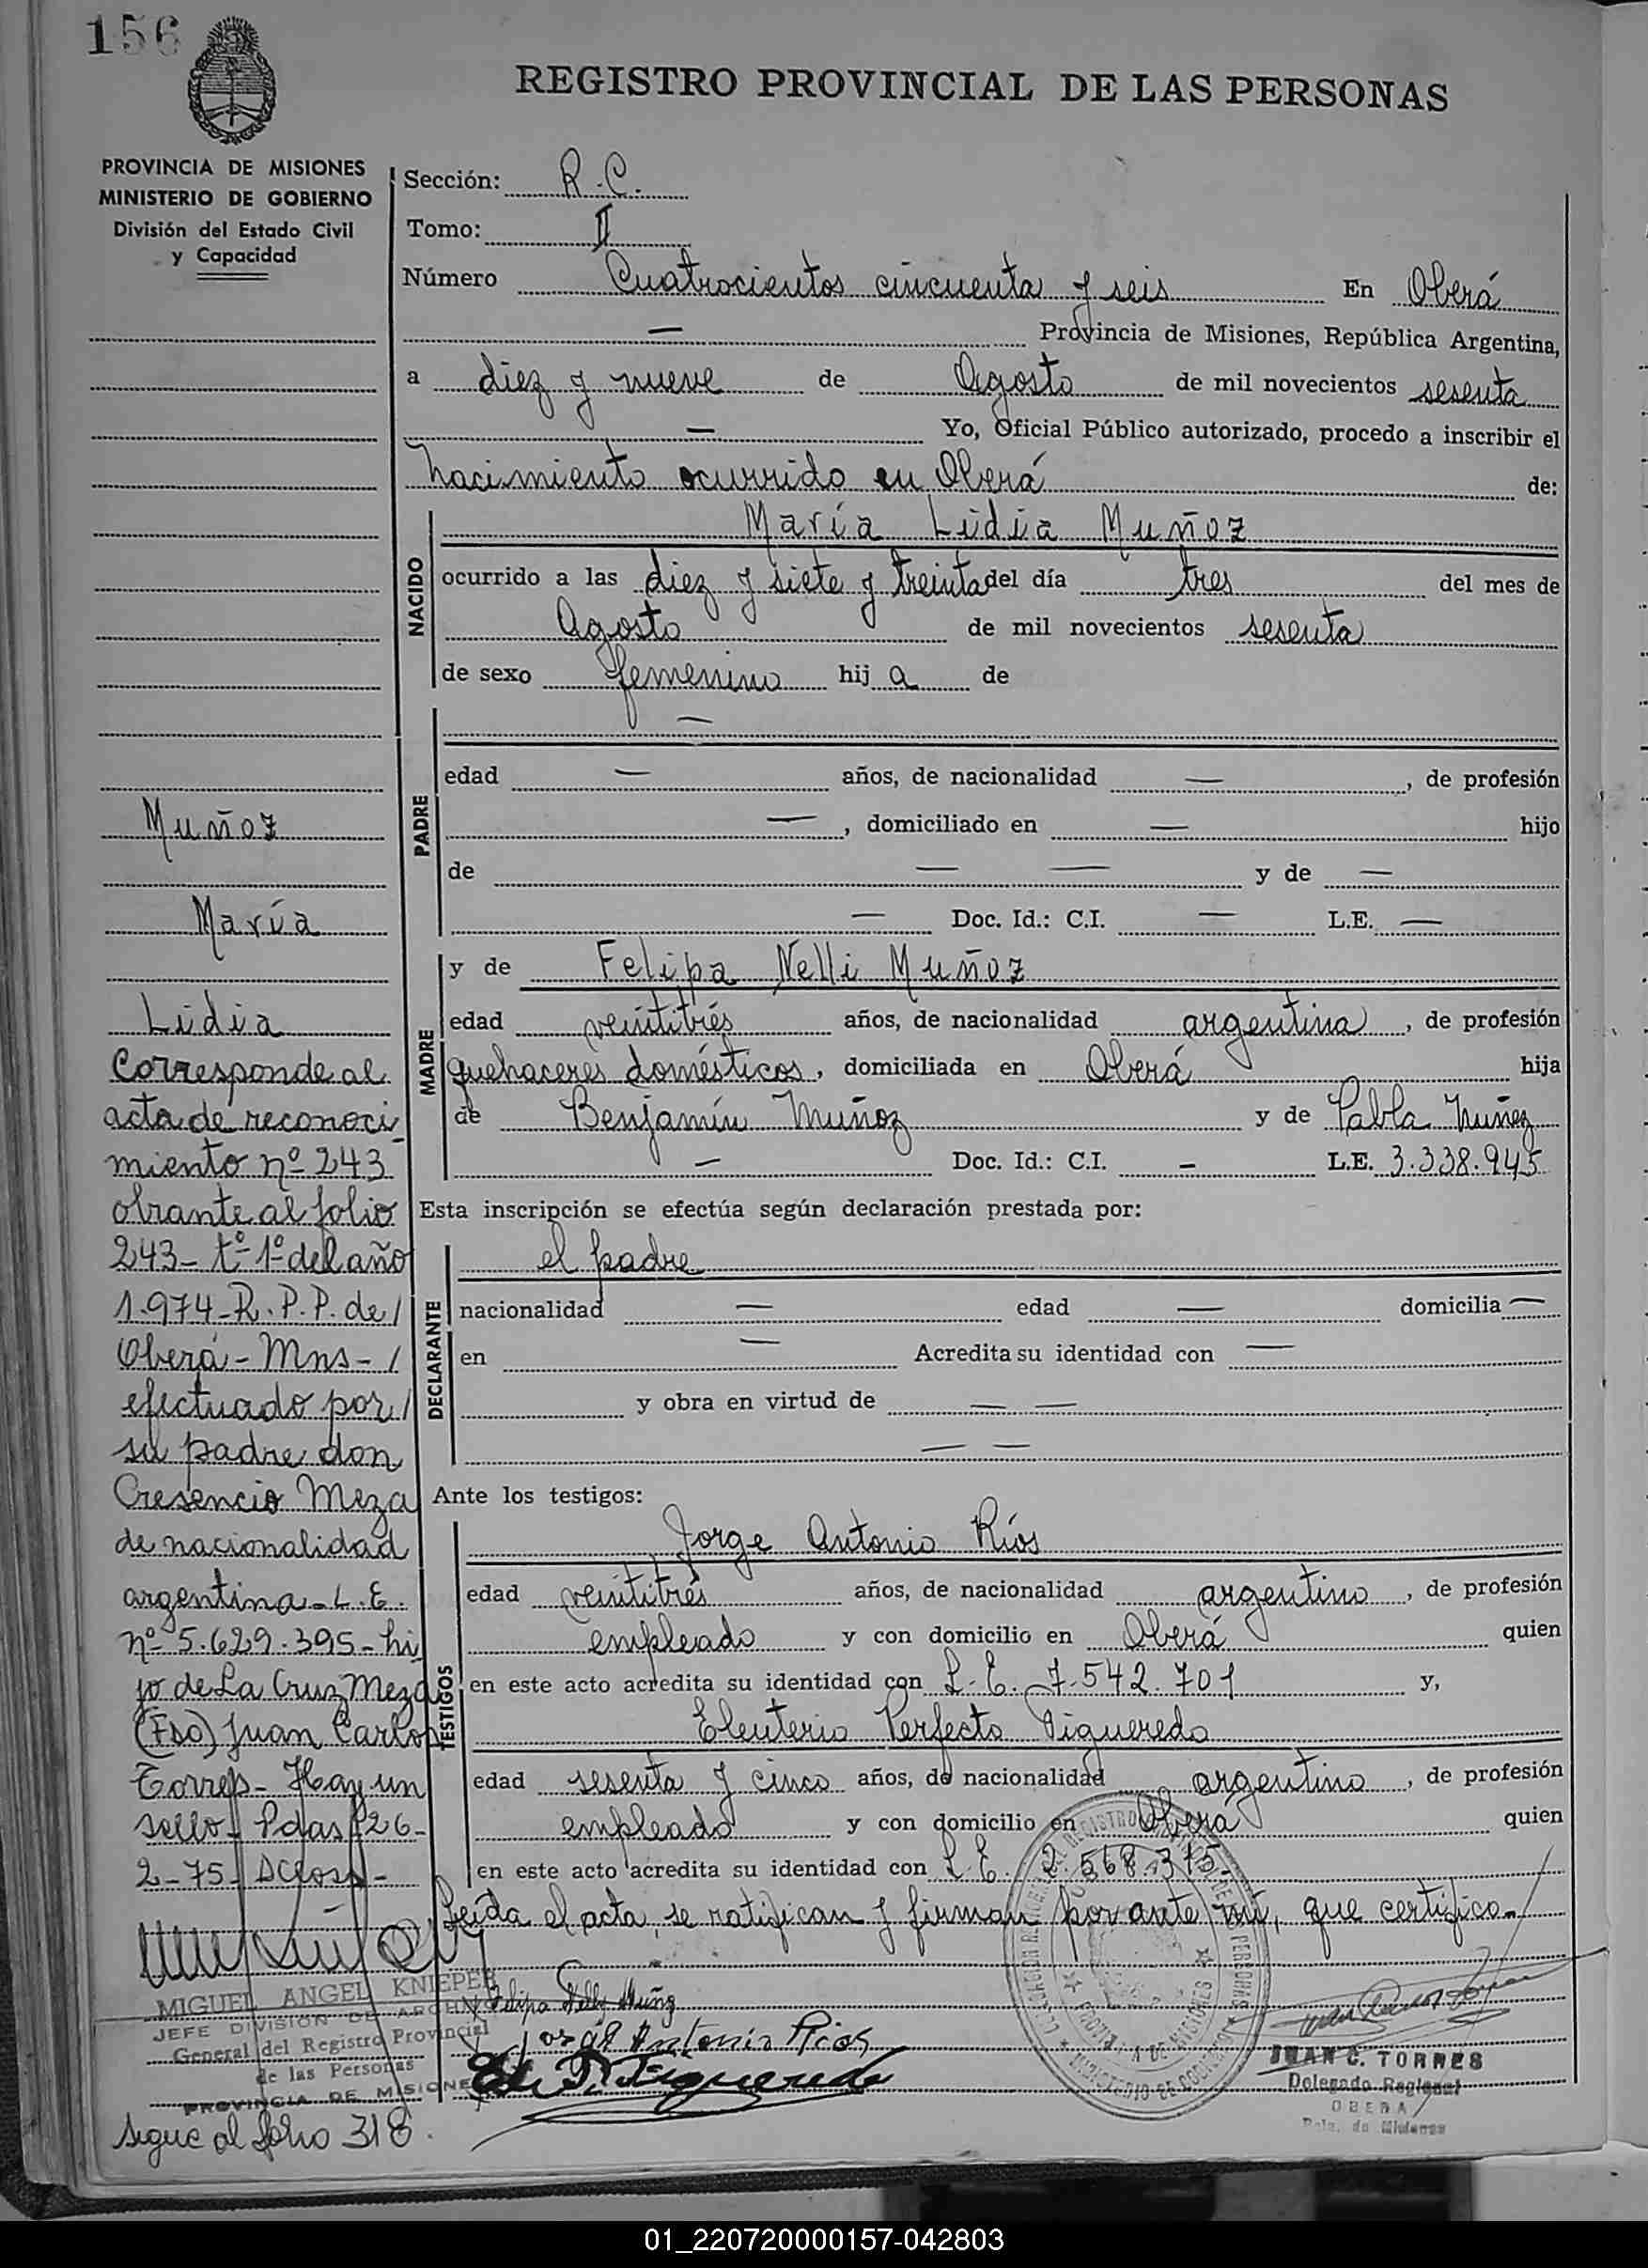 156
REGISTRO PROVINCIAL DE LAS PERSONAS
PROVINCIA DE MISIONES
MINISTERIO DE GOBIERNO
División del Estado Civil
y Capacidad
Sección: R.C.
Tomo: II
Número Cuatrocientos cincuenta y seis En Oberá
— Provincia de Misiones, República Argentina,
a diez y nueve de Agosto de mil novecientos sesenta
— Yo, Oficial Público autorizado, procedo a inscribir el
nacimiento ocurrido en Oberá de:
NACIDO
María Lidia Muñoz
ocurrido a las diez y siete y treinta del día tres del mes de
Agosto de mil novecientos sesenta
de sexo femenino hij a de
PADRE
—
edad — años, de nacionalidad — , de profesión
— , domiciliado en — hijo
de — — y de —
— Doc. Id.: C.I. — L.E. —
MADRE
y de Felipa Nelli Muñoz
edad veintitrés años, de nacionalidad argentina , de profesión
quehaceres domésticos , domiciliada en Oberá hija
de Benjamín Muñoz y de Pabla Nuñez
— Doc. Id.: C.I. — L.E. 3.338.945
Esta inscripción se efectúa según declaración prestada por:
DECLARANTE
el padre
nacionalidad — edad — domicilia —
en — Acredita su identidad con —
y obra en virtud de — —
— —
Ante los testigos:
TESTIGOS
Jorge Antonio Ríos
edad veintitrés años, de nacionalidad argentino , de profesión
empleado y con domicilio en Oberá quien
en este acto acredita su identidad con L.E. 7.542.701 y,
Eleuterio Perfecto Figueredo
edad sesenta y cinco años, de nacionalidad argentino , de profesión
empleado y con domicilio en Oberá quien
en este acto acredita su identidad con L.E. 2.568.375.
Leída el acta, se ratifican y firman por ante mí, que certifico.
Felipa Nelli Muñoz
Jorge Antonio Rios
E. P. Figueredo
JUAN C. TORRES
Delegado Regional
OBERA
Pcia. de Misiones
Muñoz
María
Lidia
Corresponde al
acta de reconoci
miento nº 243
obrante al folio
243- tº 1º del año
1.974- R.P.P. de /
Oberá - Mns - /
efectuado por /
su padre don
Cresencio Meza
de nacionalidad
argentina - L.E.
nº 5.629.395 - hi
jo de La Cruz Meza
(Fdo) Juan Carlos
Torres - Hay un
sello - Pdas 26-
2-75-
MIGUEL ANGEL KNIEPER
JEFE DIVISION DE ARCHIVO
General del Registro Provincial
de las Personas
PROVINCIA DE MISIONES
sigue al folio 318.
01_220720000157-042803